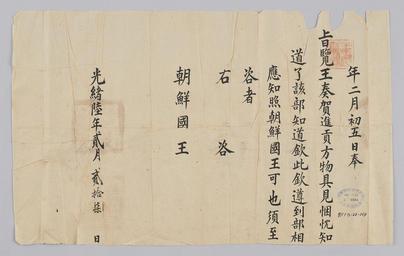 年二月初五日奉
上旨覽王奏賀進貢方物具見悃忱知
道了該部知道欽此欽遵到部相
應知照朝鮮國王可也須至
咨者
右咨
朝鮮國王
光緒陸年貳月貳拾柒日